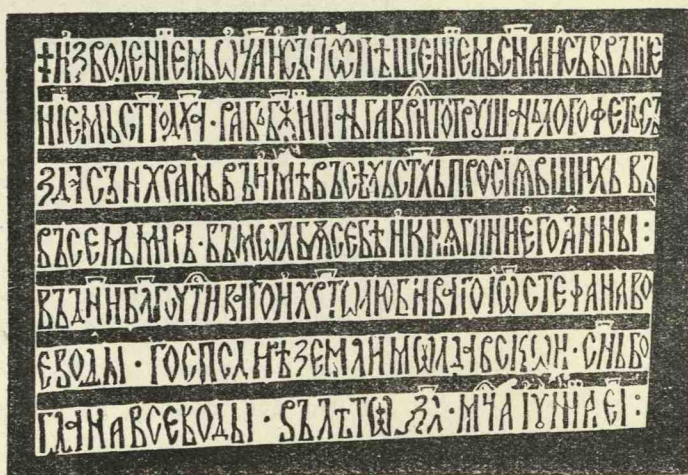 ‡ ИЗВОЛЕНЇЕМЬ Ѡ҃ЧА И СЪ ПОСПѢШЕНЇЕМЬ С҃НА И СЪВРЪШЕ
НЇЕМЬ СТ҃ГО ДХ҃А · РАБЬ БЖ҃ЇИ ПАНЬ ГАВРИЛ ТОТРУШАНЬ ЛОГОФЕТЬ СЪ
ЗДА СЪИ ХРАМЬ ВЪ ИМѢ ВЪСѢХЬ СТ҃ХЬ ПРОСЇѦВШИХЬ ВЪ
ВЪСЕМЬ МИРЬ · ВЪ МѠЛБѪ СЕБѢ И КНѦГИНИ ЕГО АННЫ :
ВЪ ДНИ БЛ҃ГОЧТИВАГО И ХР҃ТѠЛЮБИВАГО ІѠ СТЕФАНА ВО
ЕВОДЫ · ЗЕМЛИ МѠЛДАВСКѠИ · СН҃Ь БО
ГДАНА ВОЕВОДЫ · ВЪ ЛѢТѠ ҂ЗЛ · МЧ҃А ІꙊНЇА ЕІ :